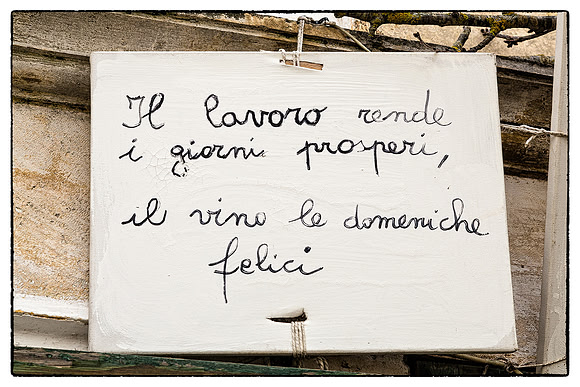 Il lavoro rende
i giorni prosperi,
il vino le domeniche
felici